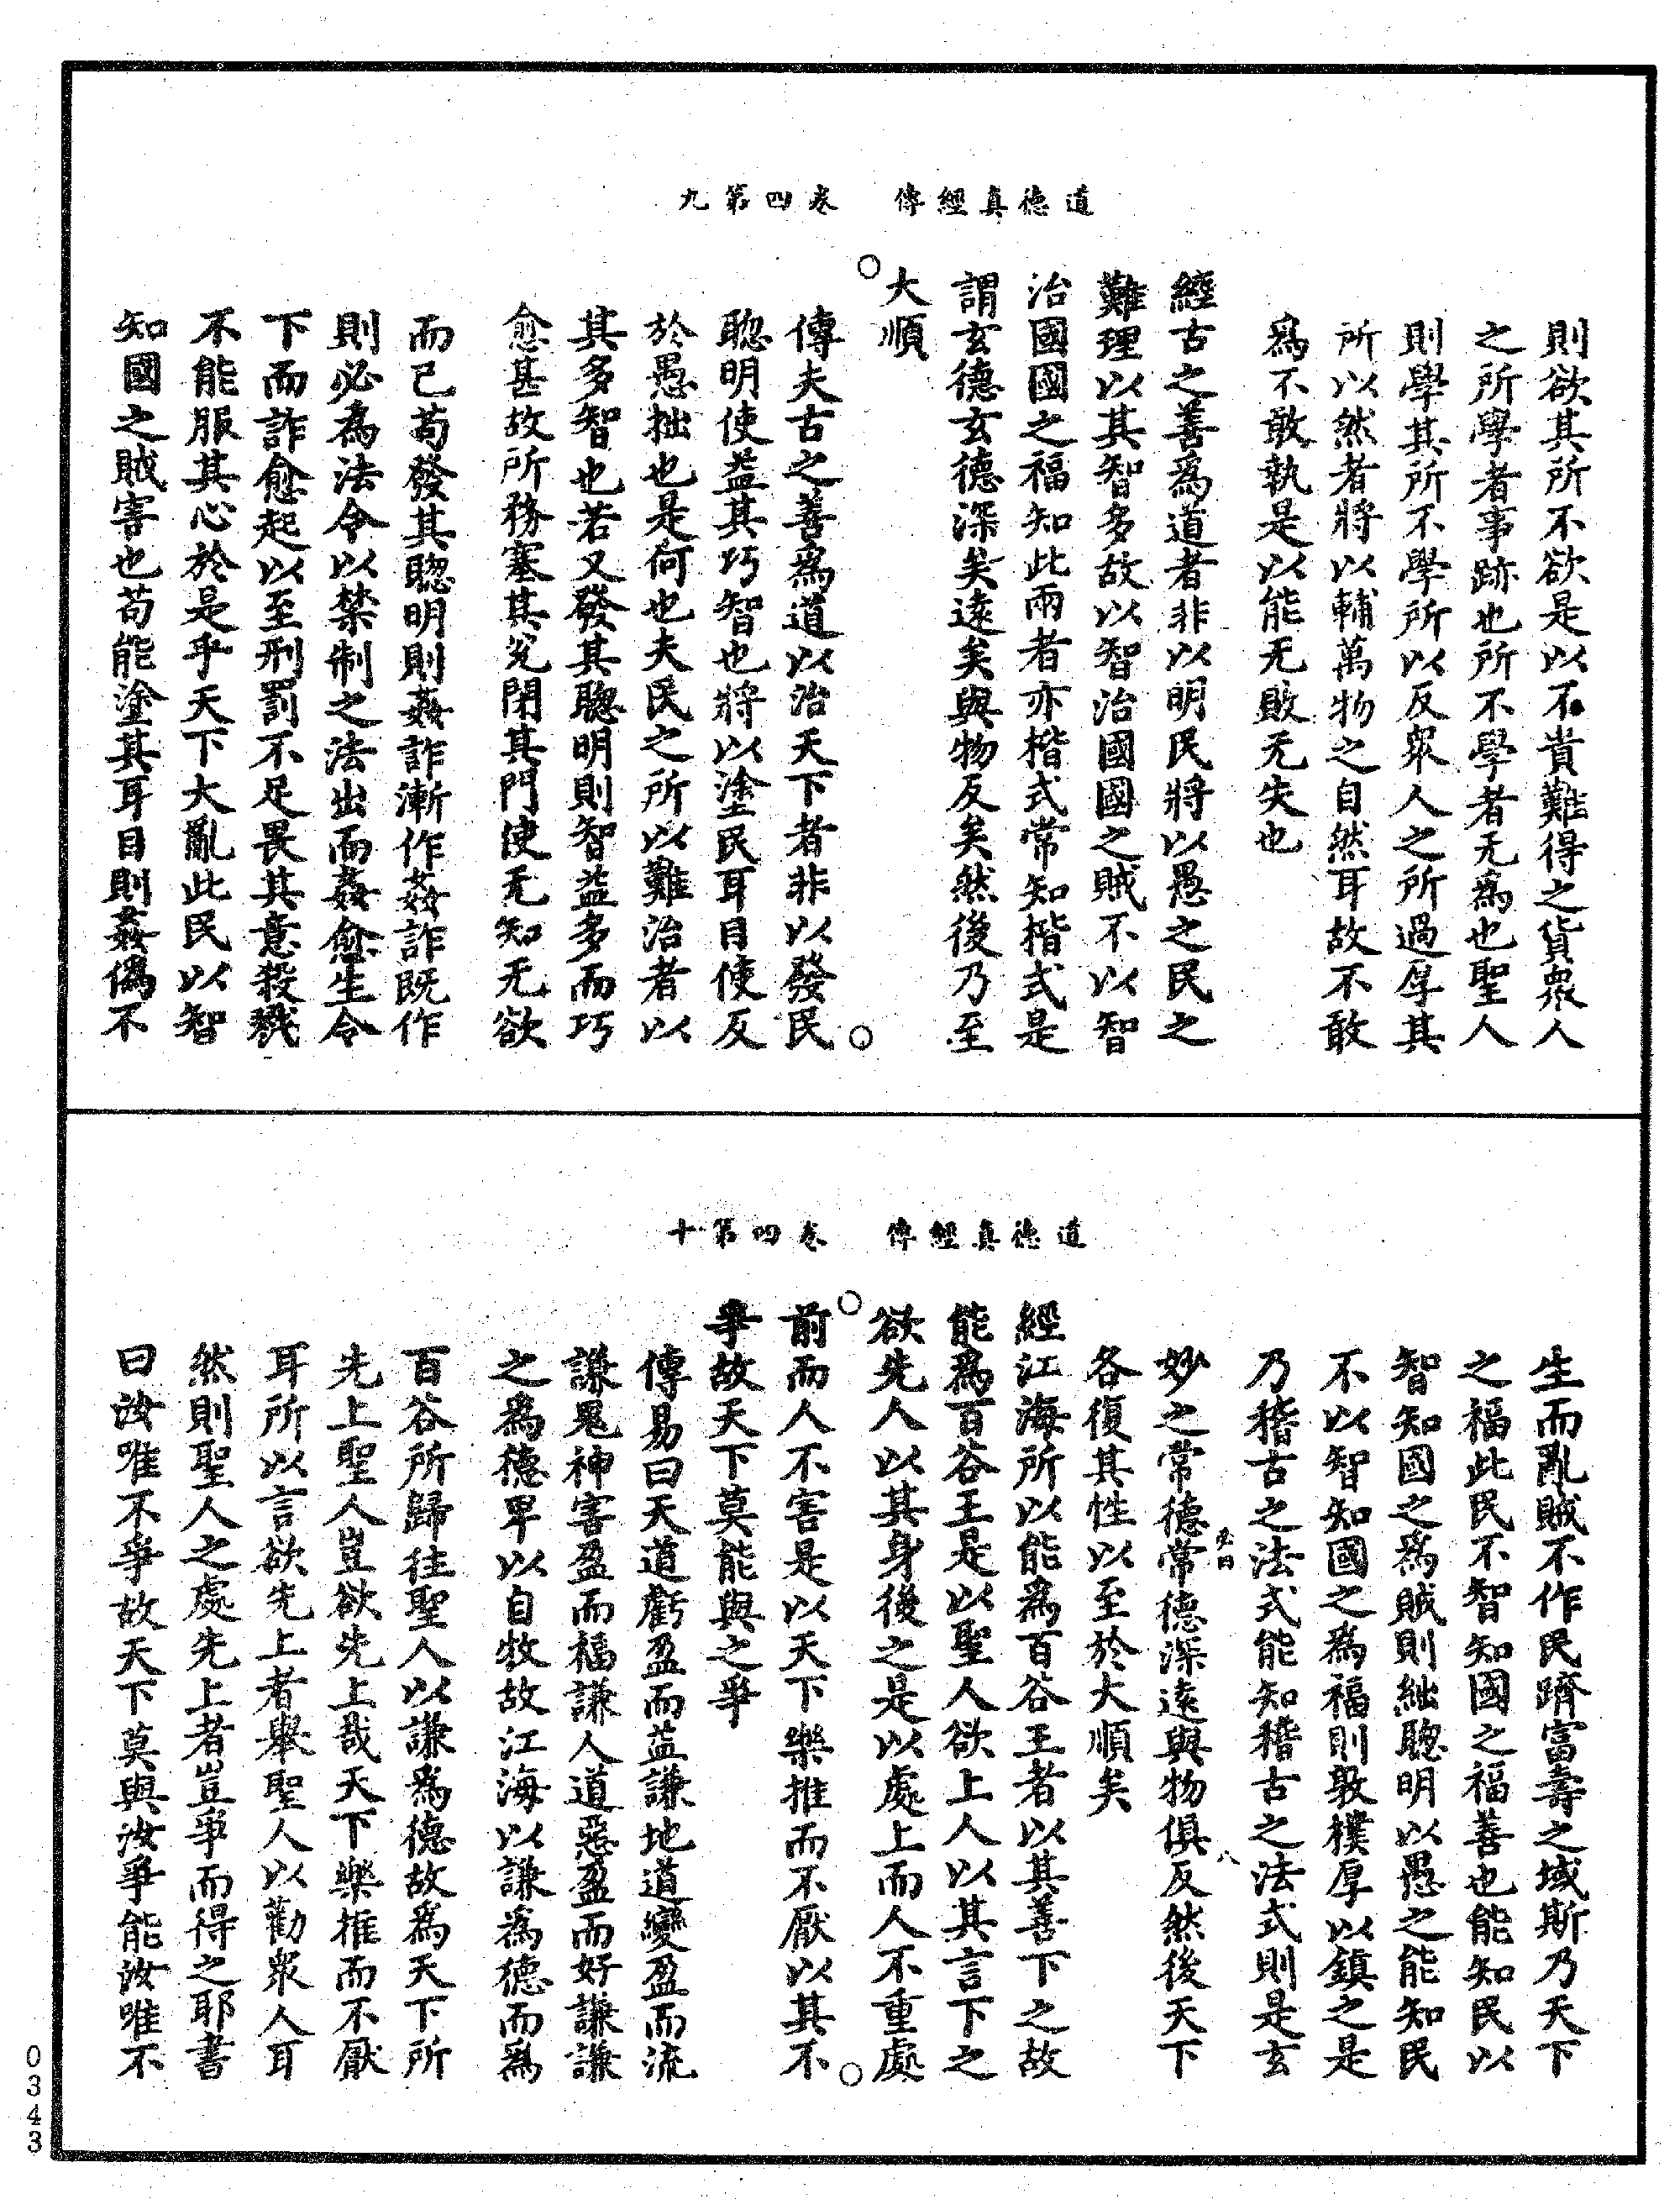 道德真經傳　卷四第九
則欲其所不欲是以不貴難得之貨衆人
之所學者事跡也所不學者无爲也聖人
則學其所不學所以反衆人之所過厚其
所以然者將以輔萬物之自然耳故不敢
爲不敢執是以能无敗无失也
經古之善爲道者非以明民將以愚之民之
難理以其智多故以智治國國之賊不以智
治國國之福知此兩者亦楷式常知楷式是
謂玄德玄德深矣遠矣與物反矣然後乃至
大順
傳夫古之善爲道以治天下者非以發民
聦明使益其巧智也將以塗民耳目使反
於愚拙也是何也夫民之所以難治者以
其多智也若又發其聦明則智益多而巧
愈甚故所務塞其兊閉其門使无知无欲
而已苟發其聦明則姦詐漸作姦詐既作
則必爲法令以禁制之法出而姦愈生令
下而詐愈起以至刑罰不足畏其意殺戮
不能服其心於是乎天下大亂此民以智
知國之賊害也苟能塗其耳目則姦僞不
道德真經傳　卷四第十
生而亂賊不作民躋富壽之域斯乃天下
之福此民不智知國之福善也能知民以
智知國之爲賊則絀聦明以愚之能知民
不以智知國之爲福則敦樸厚以鎮之是
乃稽古之法式能知稽古之法式則是玄
妙之常德常德深遠與物俱反然後天下
各復其性以至於大順矣
八
經江海所以能爲百谷王者以其善下之故
能爲百谷王是以聖人欲上人以其言下之
欲先人以其身後之是以處上而人不重處
前而人不害是以天下樂推而不厭以其不
爭故天下莫能與之爭
傳易曰天道虧盈而益謙地道變盈而流
謙鬼神害盈而福謙人道惡盈而好謙謙
之爲德卑以自牧故江海以謙爲德而爲
百谷所歸往聖人以謙爲德故爲天下所
先上聖人豈欲先上哉天下樂推而不厭
耳所以言欲先上者舉聖人以勸衆人耳
然則聖人之處先上者豈爭而得之耶書
曰汝唯不爭故天下莫與汝爭能汝唯不
0343